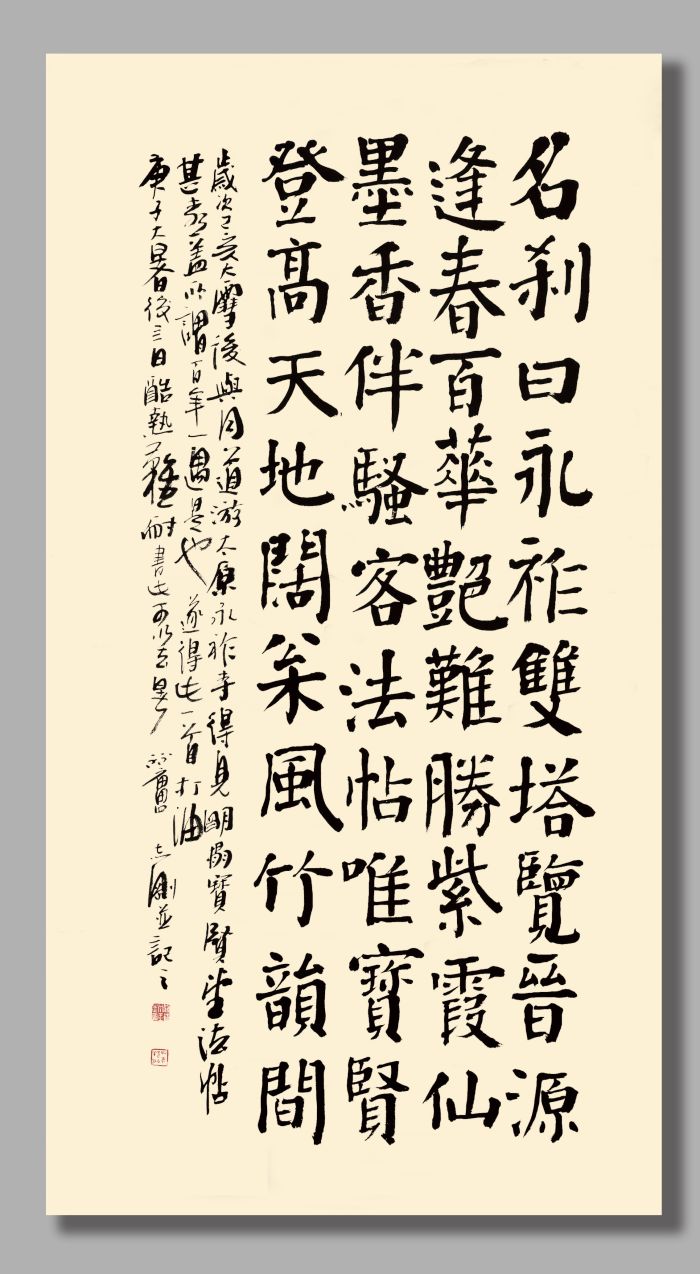 名刹曰永祚雙塔覽晉源
逢春百華艷難勝紫霞仙
墨香伴騷客法帖唯寶賢
登高天地闊采風竹韻間
歲次己亥大雪後與同道游太原永祚寺得見明搨寶賢堂法帖
甚幸蓋所謂百年一遇是也遂得此一首打油
庚子大暑後三日酷熱難耐書此志剛並記之